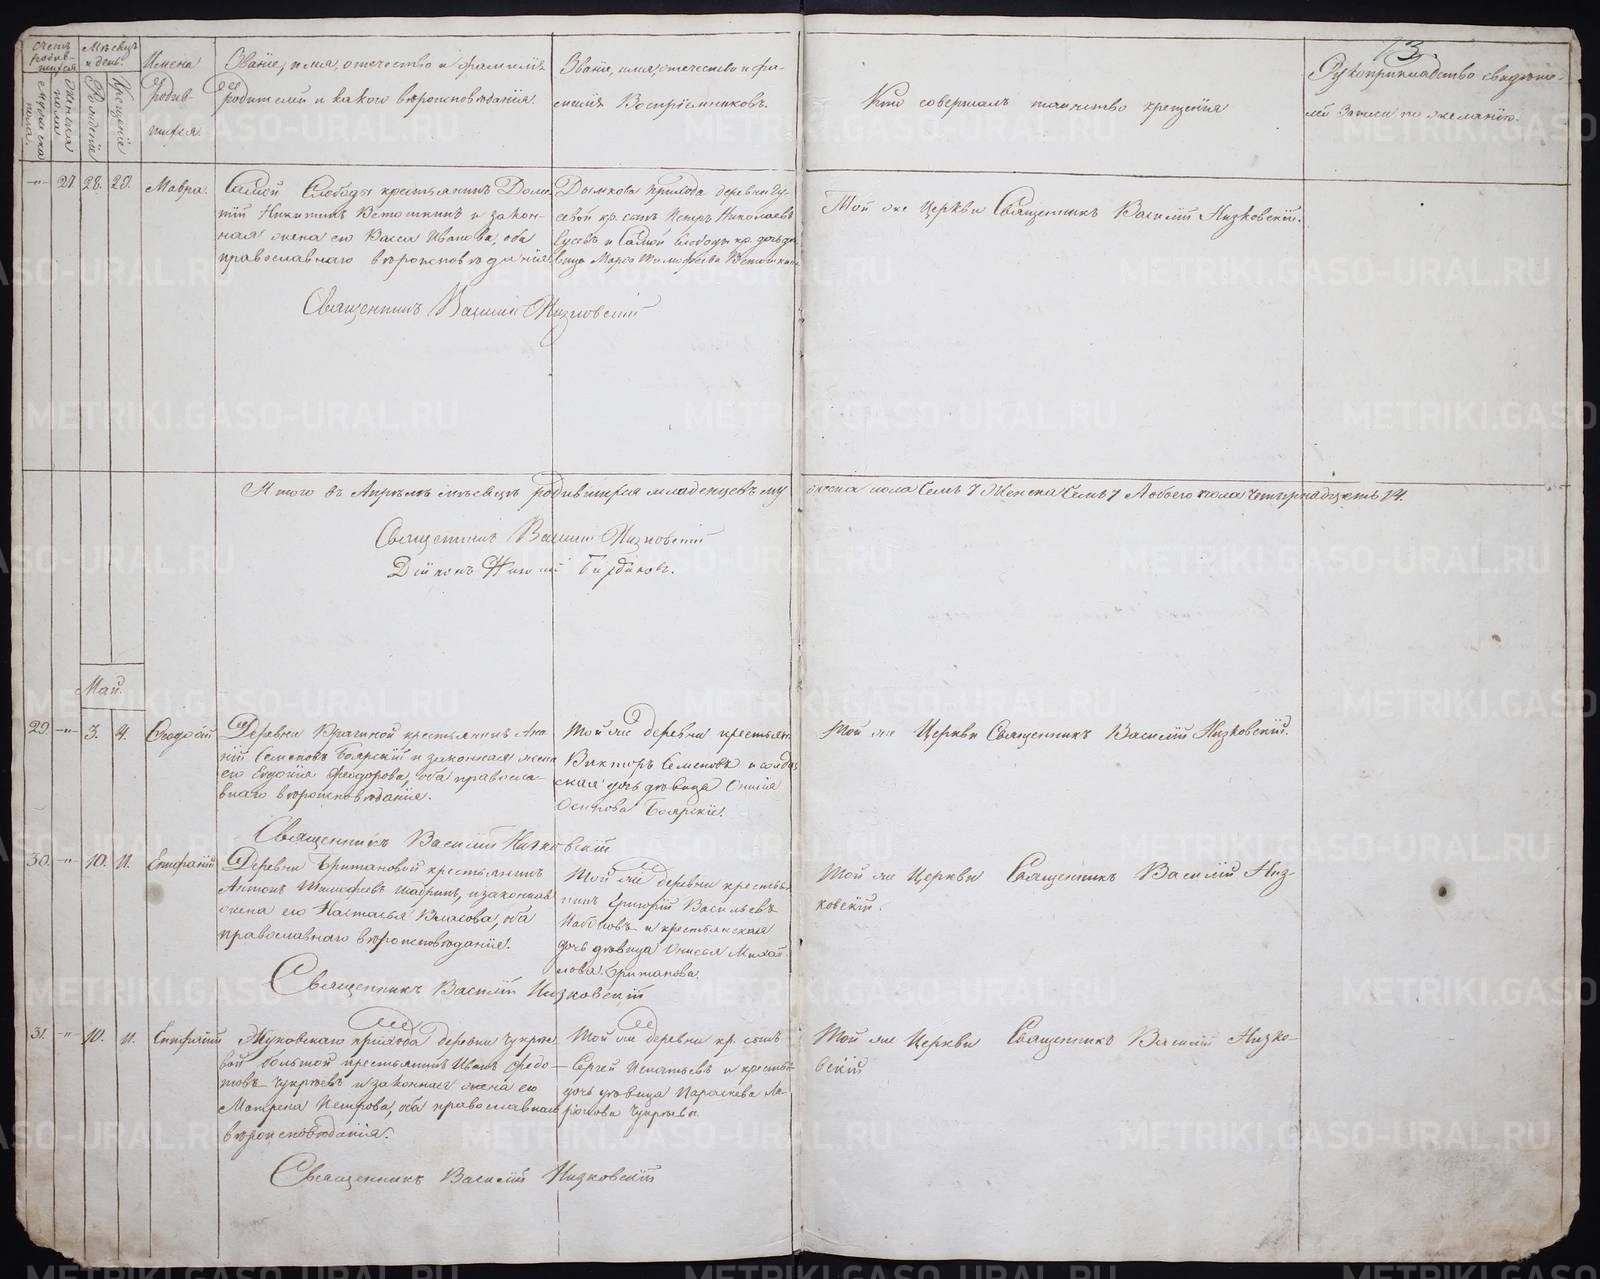 13
Счетъ родив-шихся
Мужеска пола.
Женска пола
Мѣсяцъ и день.
Рожденія
Крещенія
Имена родив-шихся
Званіе, имя, отечество и фамилія
родителей и какого вѣроисповѣданія.
Званіе, имя, отечество и фа-
милія Воспріемниковъ.
Кто совершалъ таинство крещенія
Рукоприкладство свидѣте-
лей записи по желанію.
-"- 27 28. 29. Мавра.
Самой Слободы крестьянинъ Доме-
тій Никитинъ Ветошкинъ и закон-
ная жена его Васса Иванова, оба
православнаго вѣроисповѣданія.
Дымкова прихода деревни Гу-
севой кр. сынъ Петръ Николаевъ
Гусевъ и Самой Слободы кр. дочь дѣ-
вица Марѳа Тимофеева Ветошкина
Той же Церкви Священникъ Василій Низковскій.
Священникъ Василій Низковскій
Итого въ Апрѣлѣ мѣсяцѣ родившихся младенцевъ му
жеска пола Семь 7 Женска Семь 7 А обоего пола четырнадцать 14.
Священникъ Василій Низковскій
Діаконъ
Май.
29. -"- 3. 4. Ѳеодосій
Деревни Брагиной крестьянинъ Ана-
ній Семеновъ Боярскій и законная жена
его Евдокія Феодорова, оба правосла-
внаго вѣроисповѣданія.
Той же деревни крестьян.
Викторъ Семеновъ и солдат
ская дочь дѣвица
Осипова Боярскіе.
Той же Церкви Священникъ Василій Низковскій.
Священникъ Василій Низковскій
30. -"- 10. 11. Епифаній
Деревни Британовой крестьянинъ
Антонъ Тимофеевъ Шабринъ, и законная
жена его Настасья Власова, оба
православнаго вѣроисповѣданія.
Той же деревни крестья-
нинъ Григорій Васильевъ
и крестьянская
дочь дѣвица Анисья Михай-
лова Бритапова.
Той же Церкви Священникъ Василій Низ-
ковскій.
Священникъ Василій Низковскій
31. -"- 10. 11. Епифаній
Жуковскаго прихода деревни Чукрѣе
вой большой крестьянинъ Иванъ Федо-
товъ Чукрѣевъ и законная жена его
Матрена Петрова, оба православнаго
вѣроисповѣданія.
Той же деревни кр. сынъ
Сергей Игнатьевъ и крестья
дочь дѣвица Параскева Ла-
ріонова Чукрѣевы.
Той же Церкви Священникъ Василій Низко-
вскій
Священникъ Василій Низковскій
METRIKI.GASO-URAL.RU